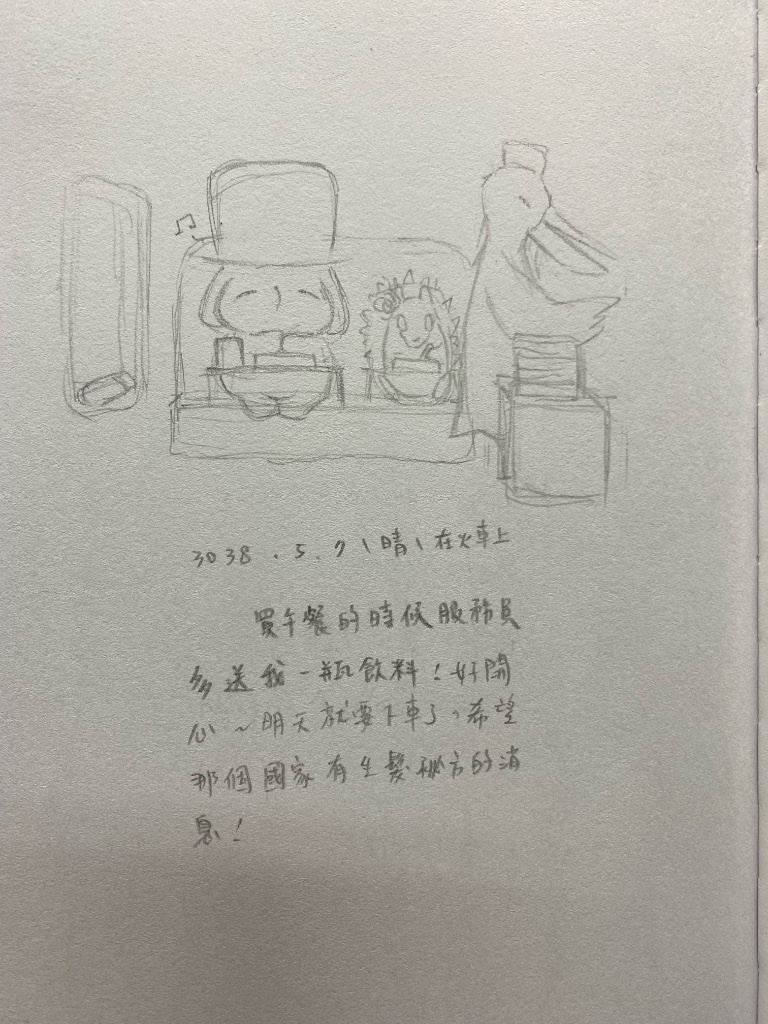 3038.5.7\晴\在火車上
買午餐的時候服務員
多送我一瓶飲料！好開
心～明天就要下車了，希望
那個國家有生髮秘方的消
息！